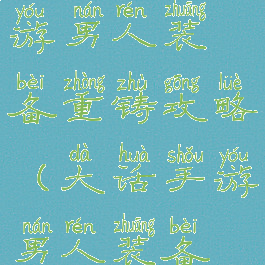 yóu nán rén zhuāng
游男人装
bèi zhòng zhù gōng lüè
备重铸攻略
dà huà shǒu yóu
（大话手游
nán rén zhuāng bèi
男人装备